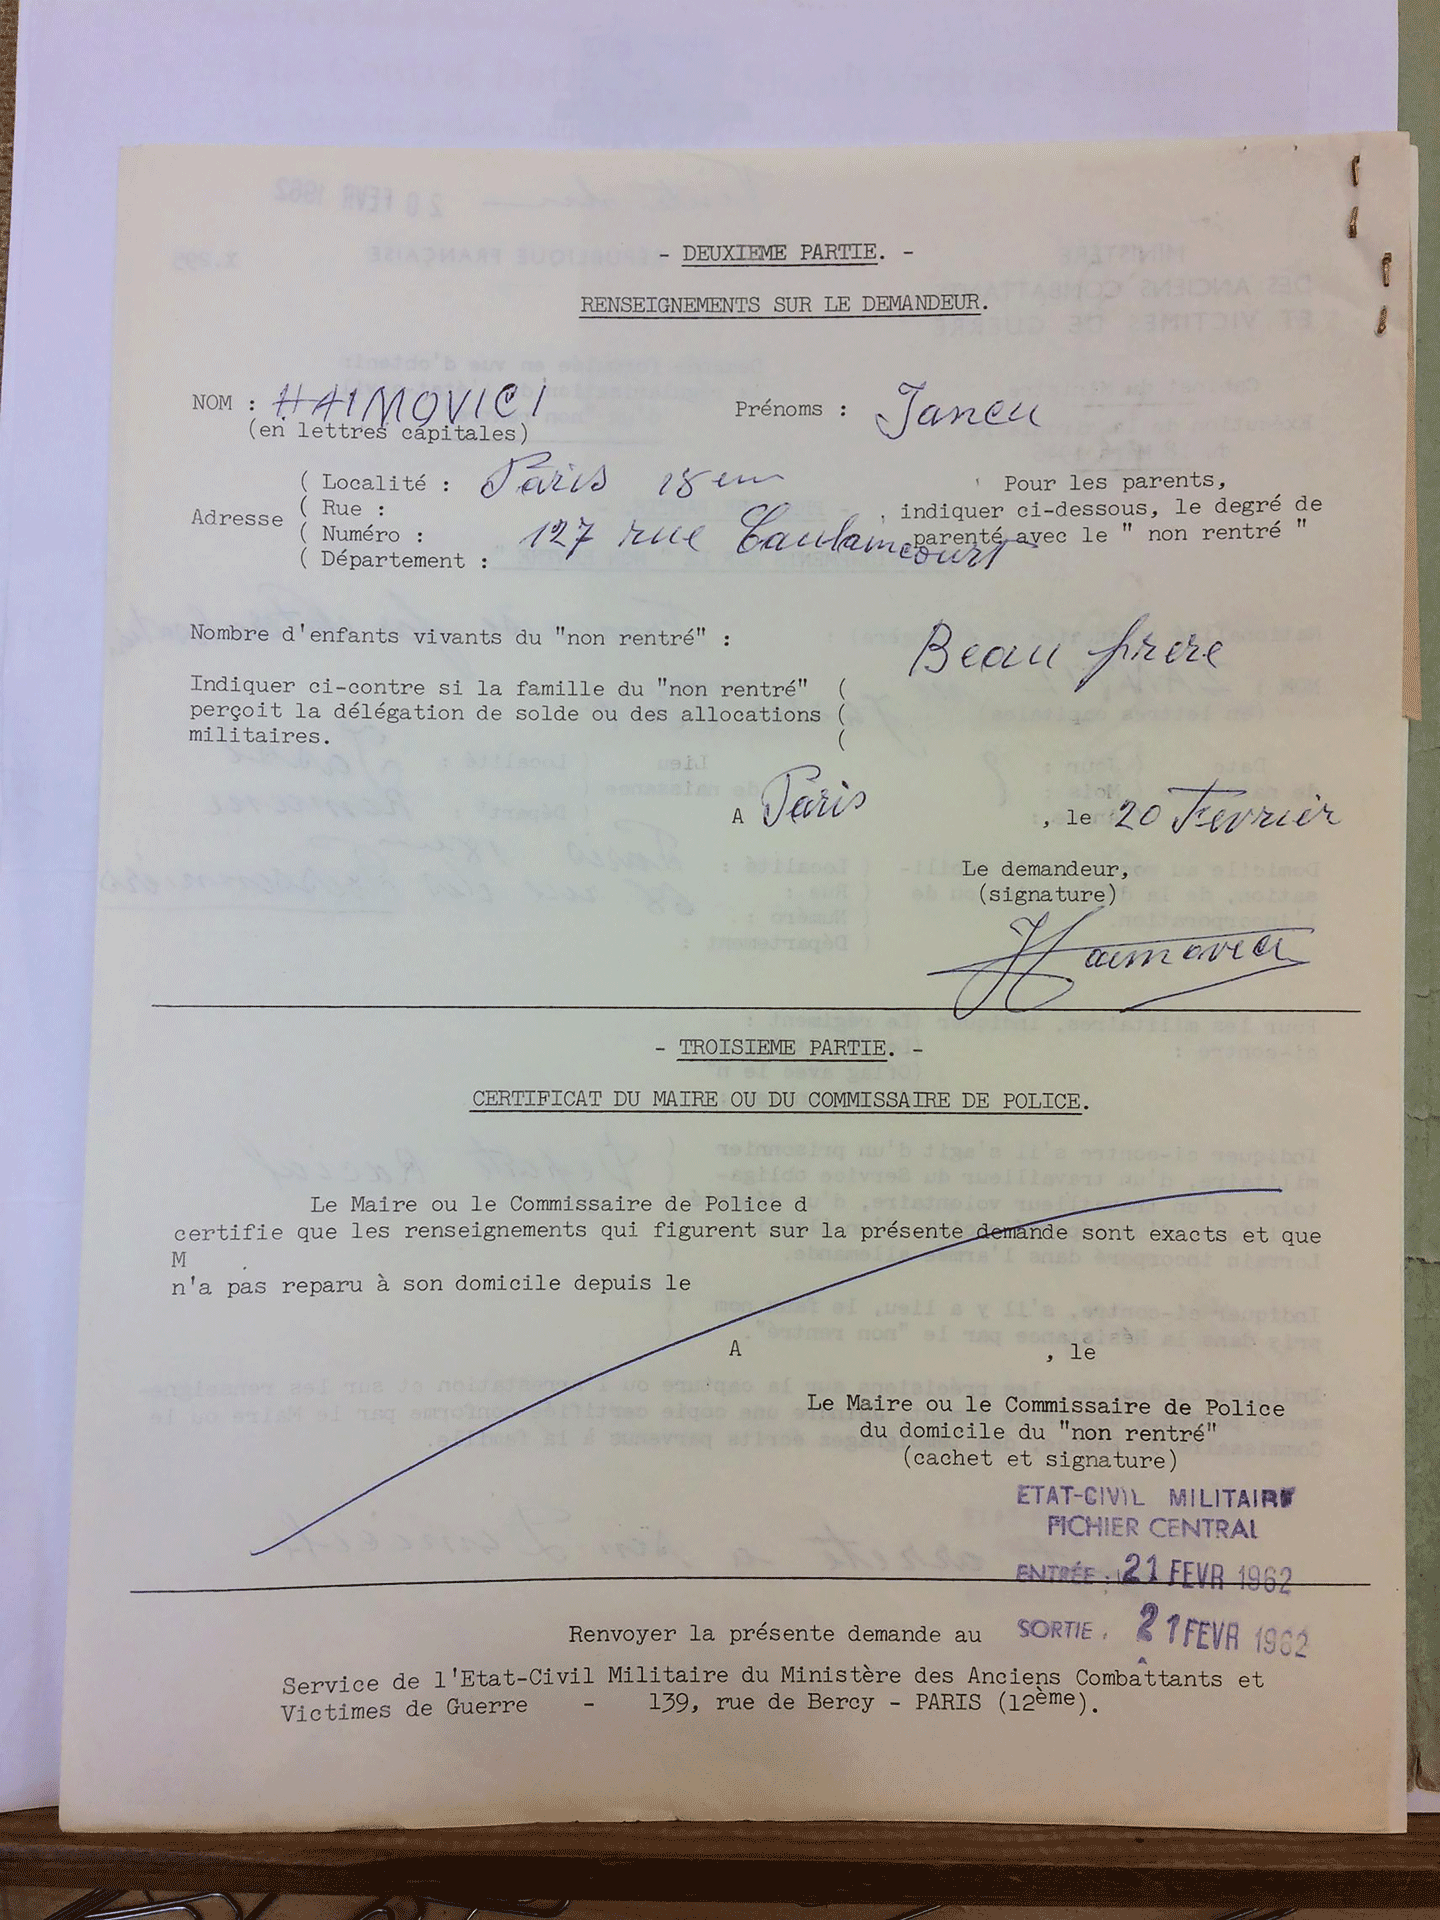 - DEUXIEME PARTIE. -
RENSEIGNEMENTS SUR LE DEMANDEUR.
NOM : HAIMOVICI Prénoms : Jancu
(en lettres capitales)
( Localité : Paris 18 em
Adresse ( Rue :
( Numéro : 127 rue Caulaincourt
( Département :
Pour les parents,
indiquer ci-dessous, le degré de
parenté avec le " non rentré "
Nombre d'enfants vivants du "non rentré" :
Beau frere
Indiquer ci-contre si la famille du "non rentré" (
perçoit la délégation de solde ou des allocations (
militaires. (
A Paris , le 20 Fevrier
Le demandeur,
(signature)
Haimovici
- TROISIEME PARTIE. -
CERTIFICAT DU MAIRE OU DU COMMISSAIRE DE POLICE.
Le Maire ou le Commissaire de Police d
certifie que les renseignements qui figurent sur la présente demande sont exacts et que
M .
n'a pas reparu à son domicile depuis le
A , le
Le Maire ou le Commissaire de Police
du domicile du "non rentré"
(cachet et signature)
ETAT-CIVIL MILITAIRE
FICHIER CENTRAL
ENTRÉE : 21 FEVR 1962
Renvoyer la présente demande au SORTIE . 21 FEVR 1962
Service de l'Etat-Civil Militaire du Ministère des Anciens Combattants et
Victimes de Guerre - 139, rue de Bercy - PARIS (12ème).